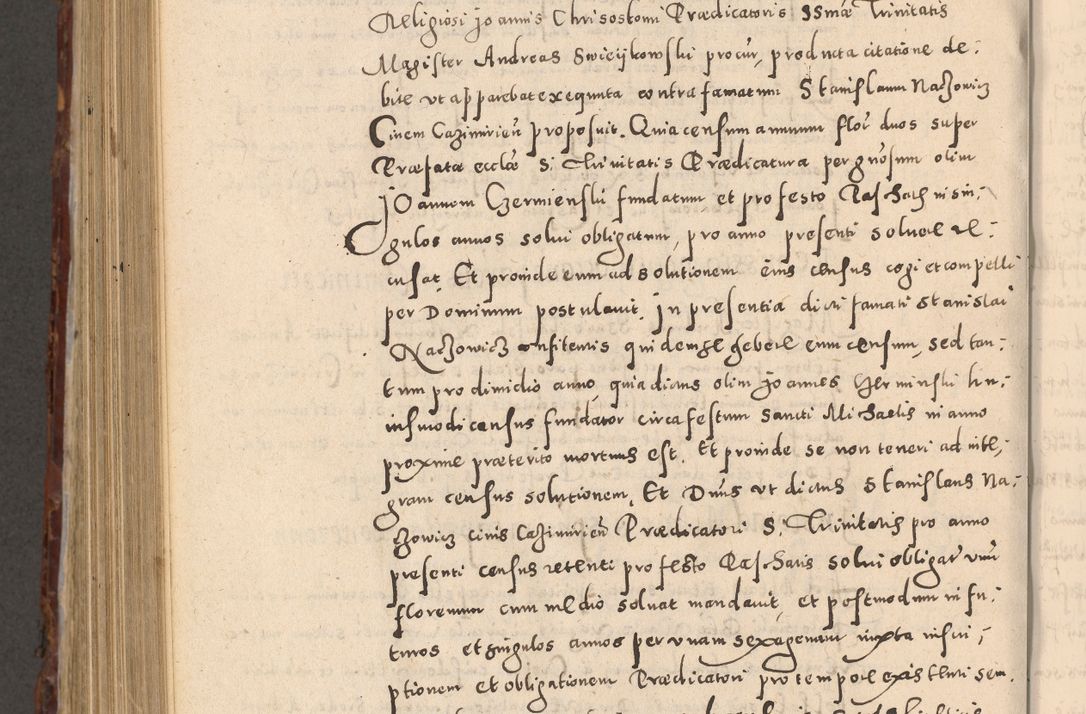 Religiosi Joannis Chrisostomi Prædicatoris SSmæ Trinitatis
Magister Andreas Swieijkowski procur, producta citatione de-
bite ut apparebat exequuta contra famatum Stanislaum Naczowicz
Civem Cazimirien proposuit. Quia censum annuum flor duos super
Præfata ecclæ S. Trinitatis Prædicatura per gnosum olim
Joannem Czerminski fundatum et pro festo Paschath in sin-
gulos annos solvi obligatum, pro anno presenti solvere re-
cusat. Et proinde eum ad solutionem eius census cogi et compelli
per Dominum postulavit. In presentia dicti famati Stanislai
Naczowicz confitentis quidem se debere eum censum, sed tan-
tum pro dimidio anno, quia dictus olim Joannes Czerminski hu-
iusmodi census fundator circa festum Sancti Michaelis in anno
proxime præterito mortuus est. Et proinde se non teneri ad inte-
gram census solutionem. Et Dnus ut dictus Stanislaus Na-
czowicz civis Cazimirien Prædicatori S. Trinitatis pro anno
presenti census retenti pro festo Paschatis solvi obligat unum
florenum cum medio solvat mandavit, et postmodum in fu-
turos et singulos annos per unam sexagenam iuxta inscri-
ptionem et obligationem Prædicatori pro tempore existenti sem-